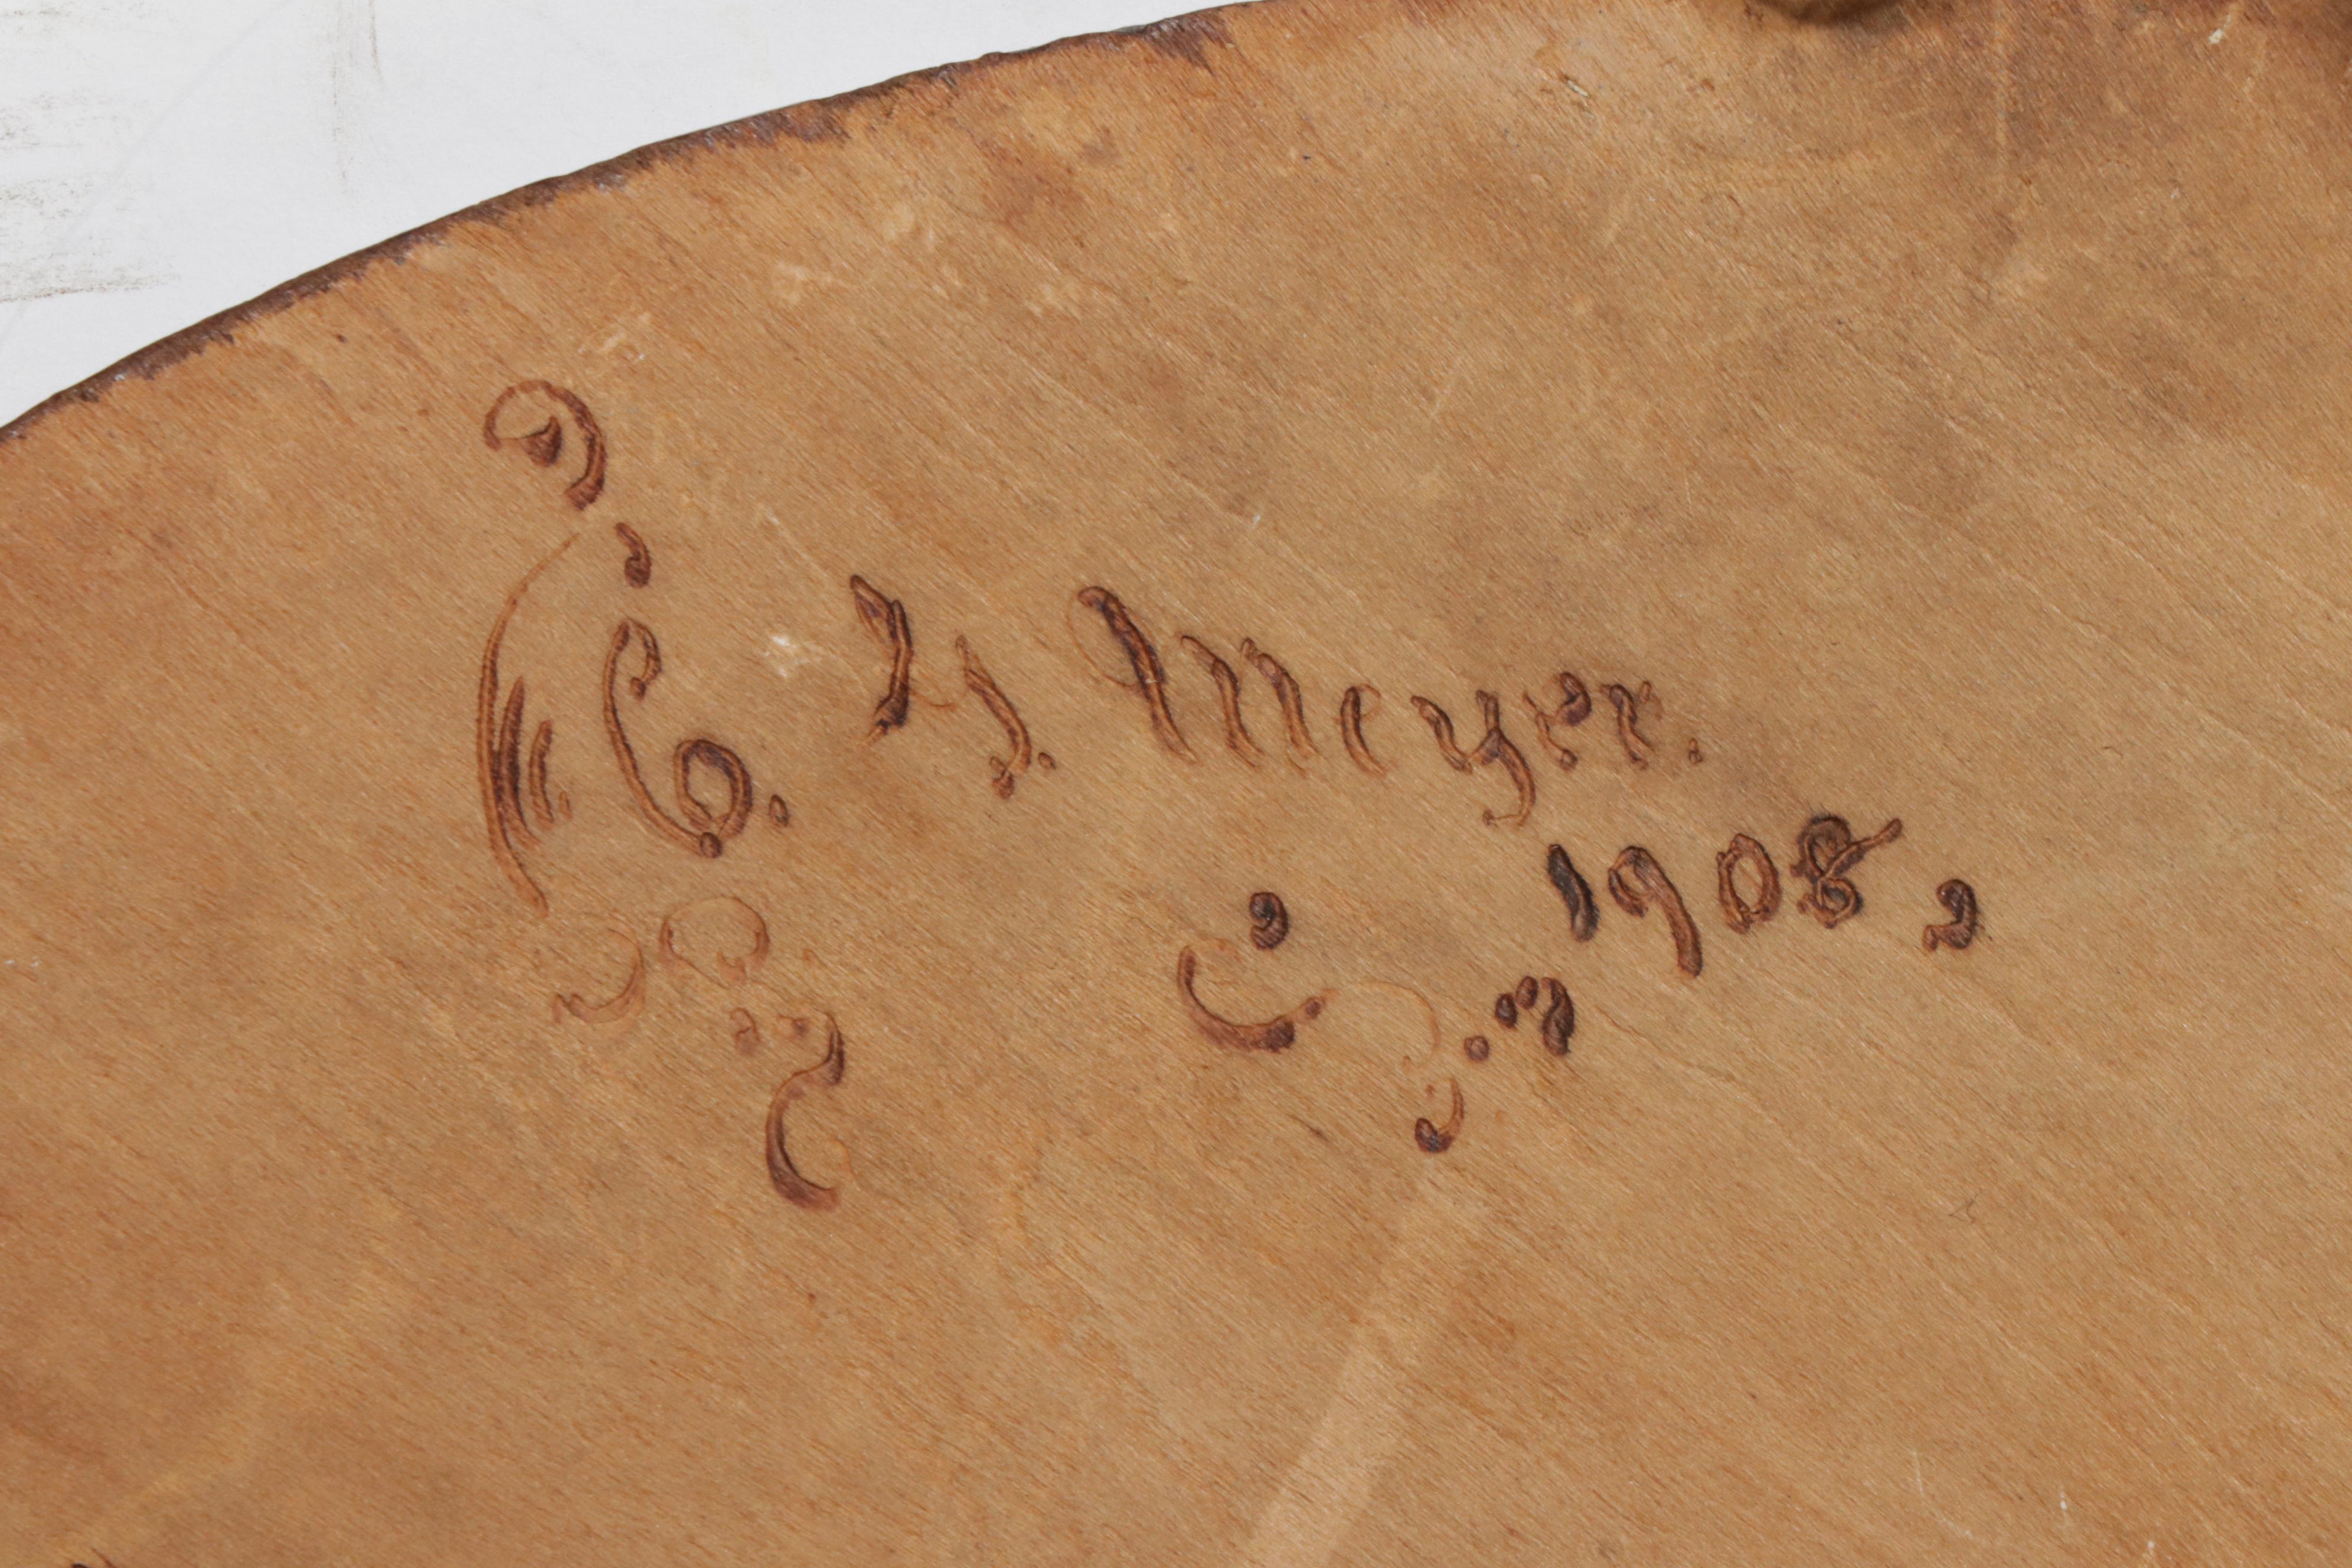 C. H. Meyer.
1908,